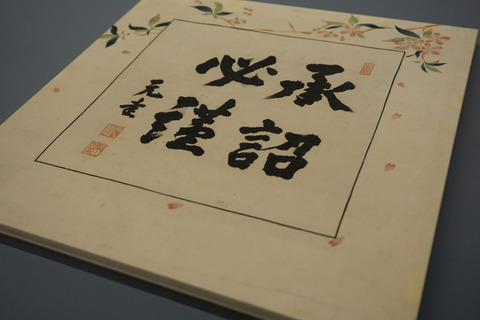 承詔
必謹
元堂